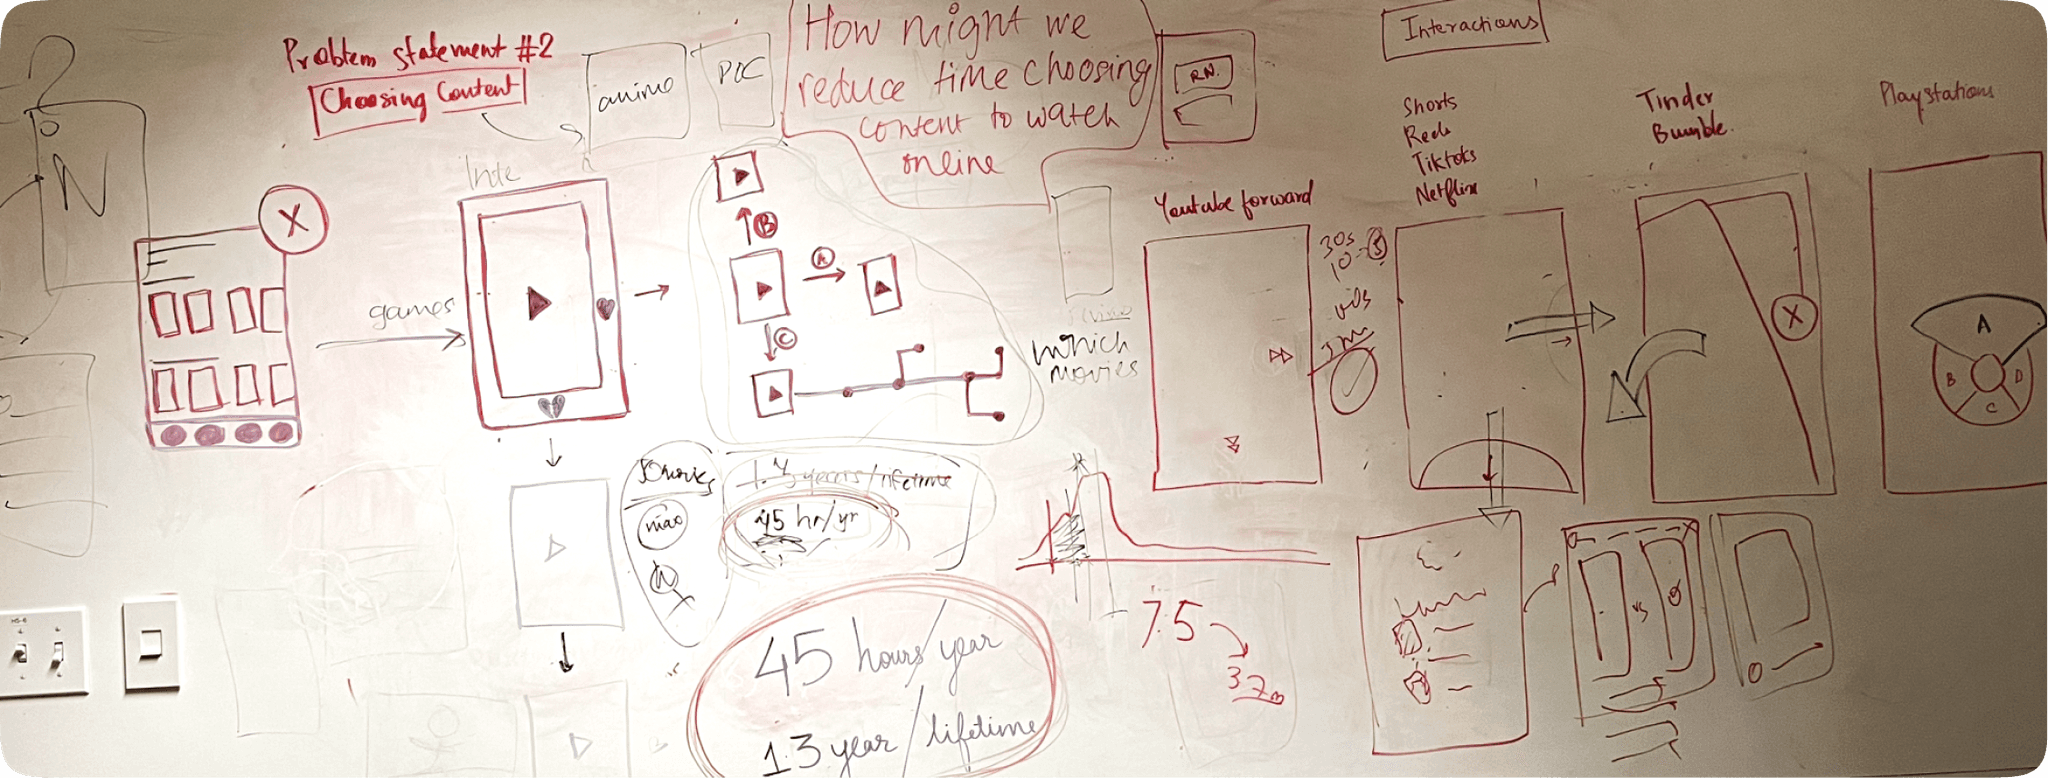 Problem statement #2
Choosing Content
anime
POC
How might we
reduce time choosing
content to watch
online
RN.
Interactions
Shorts
Reels
Tiktoks
Netflix
Tinder
Bumble.
Playstations
N
X
games
B
A
C
which
movies
Youtube forward
30s
10
5
X
A
B
D
C
1.3 years/lifetime
45 hr/yr
45 hours/year
1.3 year/lifetime
7.5
37
vs